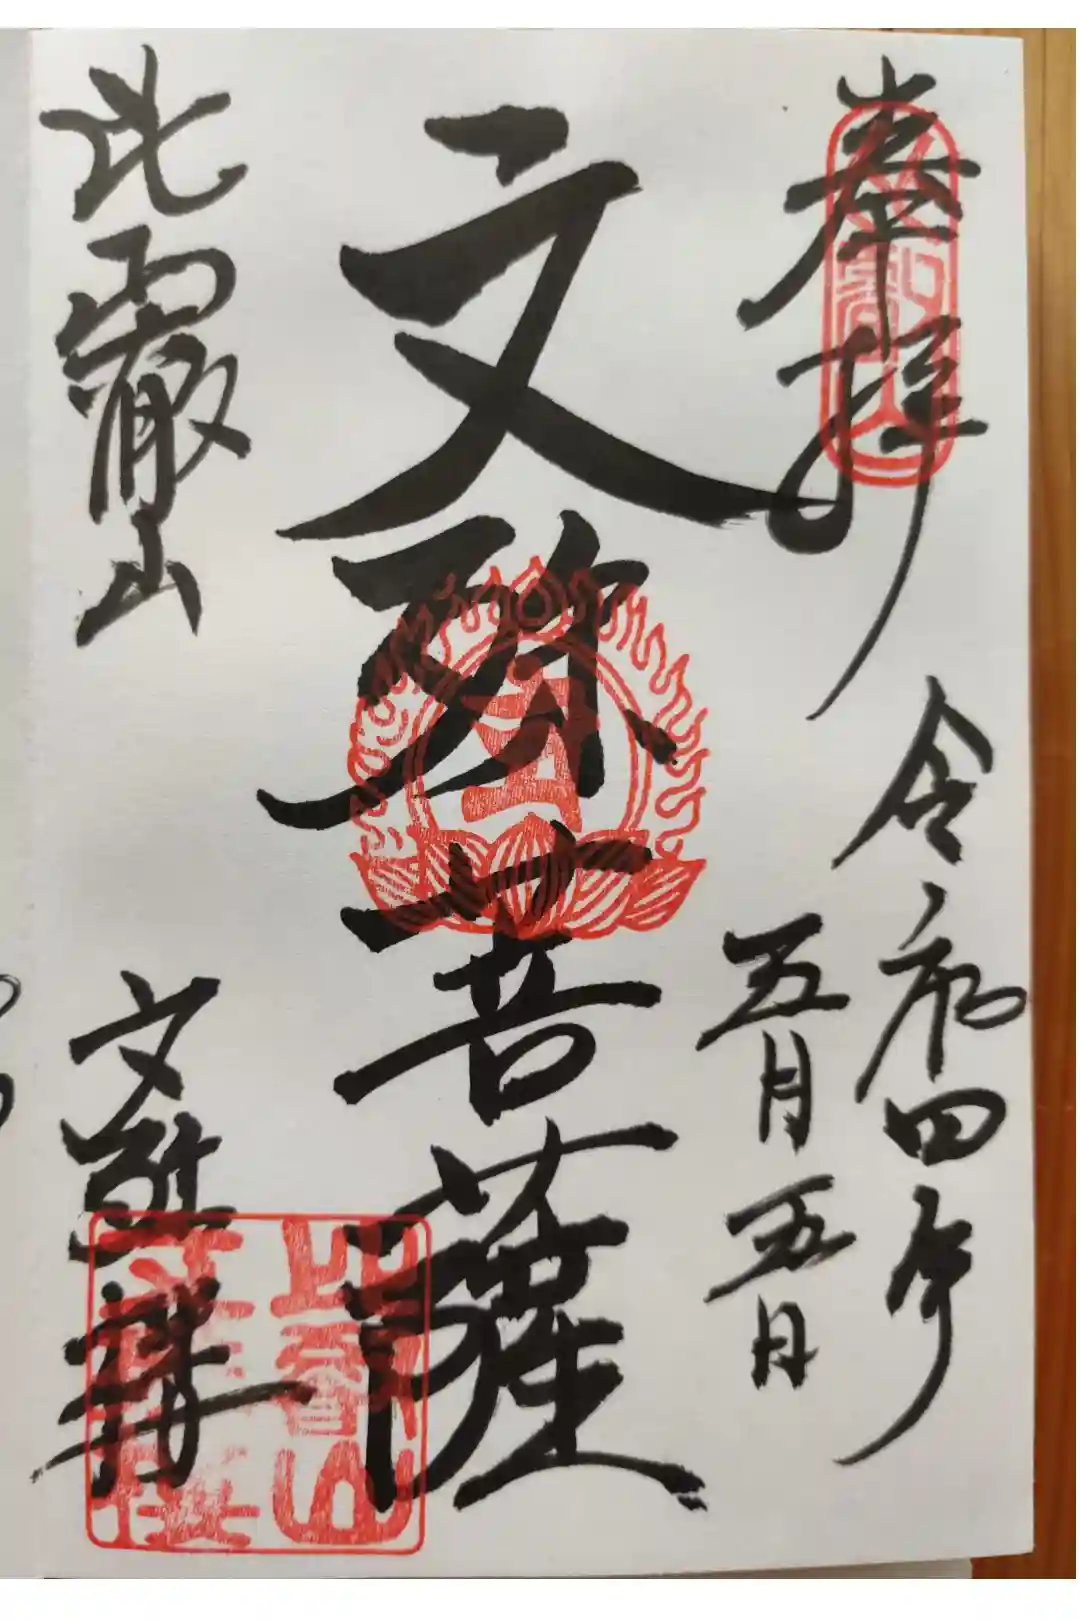 奉拝
令和四年
五月五日
文殊菩薩
比叡山
文殊樓